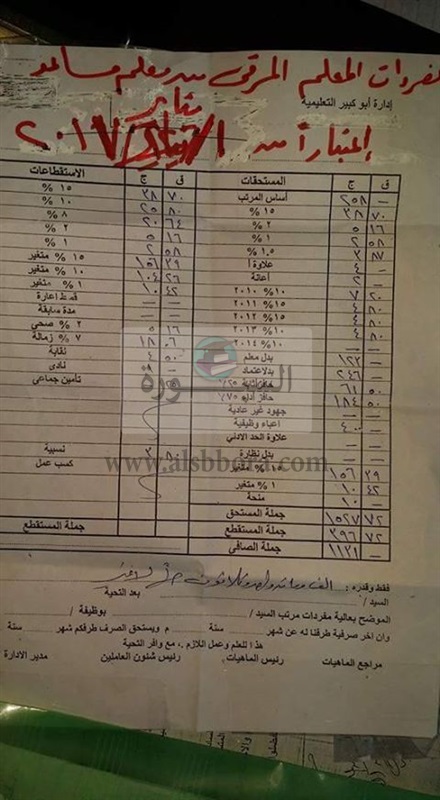 مفردات المعلم المرقى من معلم مساعد
إدارة أبو كبير التعليمية
يناير
إعتباراً من ١/يناير/٢٠١٧
ق ج المستحقات ق ج الاستقطاعات
— ٢٥٨ أساس المرتب ٧٠ ٣٨ ١٥ %
٧٠ ٣٨ ١٥ % ٨٠ ٢٥ ١٠ %
١٦ ٥ ٢ % ٦٤ ٢٠ ٨ %
٥٨ ٢ ١ % ١٦ ٥ ٢ %
٨٧ ٣ ١.٥ % ٥٨ ٢ ١ %
— ٤ علاوة أ ٣٩ ١٥٦ ١٥ % متغير
— ٢ أعانة ٢٦ ١٠٤ ١٠ % متغير
٢٠ ٧ ١٠% ٢٠١٠ ٤٢ ١٠ ١ % متغير
٨٠ ٤ ١٥% ٢٠١١ — قسط اعارة
٨٠ ٤ ١٥% ٢٠١٢ — مدة سابقة
٨٠ ٤ ١٠% ٢٠١٣ ١٦ ٥ ٢ % صحي
١٠% ٢٠١٤ ٠٦ ١٨ ٧ % زمالة
— ١٢٣ بدل معلم ٥٠ ٤ نقابة
— ٢٤٦ بدل اعتماد نادى
٥٠ ٦١ حافز اثابة ٢٥% تأمين جماعى
٥٠ ١٨٤ حافز أداء ٧٥%
جهود غير عادية
— ٤٠٠ اعباء وظيفية
علاوة الحد الادني
بدل نظارة ٨٠ ٣ نسبية
٣٩ ١٥٦ ١٥ % متغير كسب عمل
٤٢ ١٠ ١ % متغير
— ١٠ منحة
٧٢ ١٥٢٧ جملة المستحق
٧٢ ٣٩٦ جملة المستقطع جملة المستقطع
— ١١٣١ جملة الصافى
السبورة
www.alsbbora.com
فقط وقدره : الف ومائة واحد وثلاثون جـ لا غير
السيد / بعد التحية
الموضح بعالية مفردات مرتب السيد / بوظيفة /
وان اخر صرفية طرفنا له عن شهر سنة م ويستحق الصرف طرفكم شهر سنة
هذا للعلم وعمل اللازم ،، مع وافر التحية
مراجع الماهيات رئيس الماهيات رئيس شئون العاملين مدير الادارة